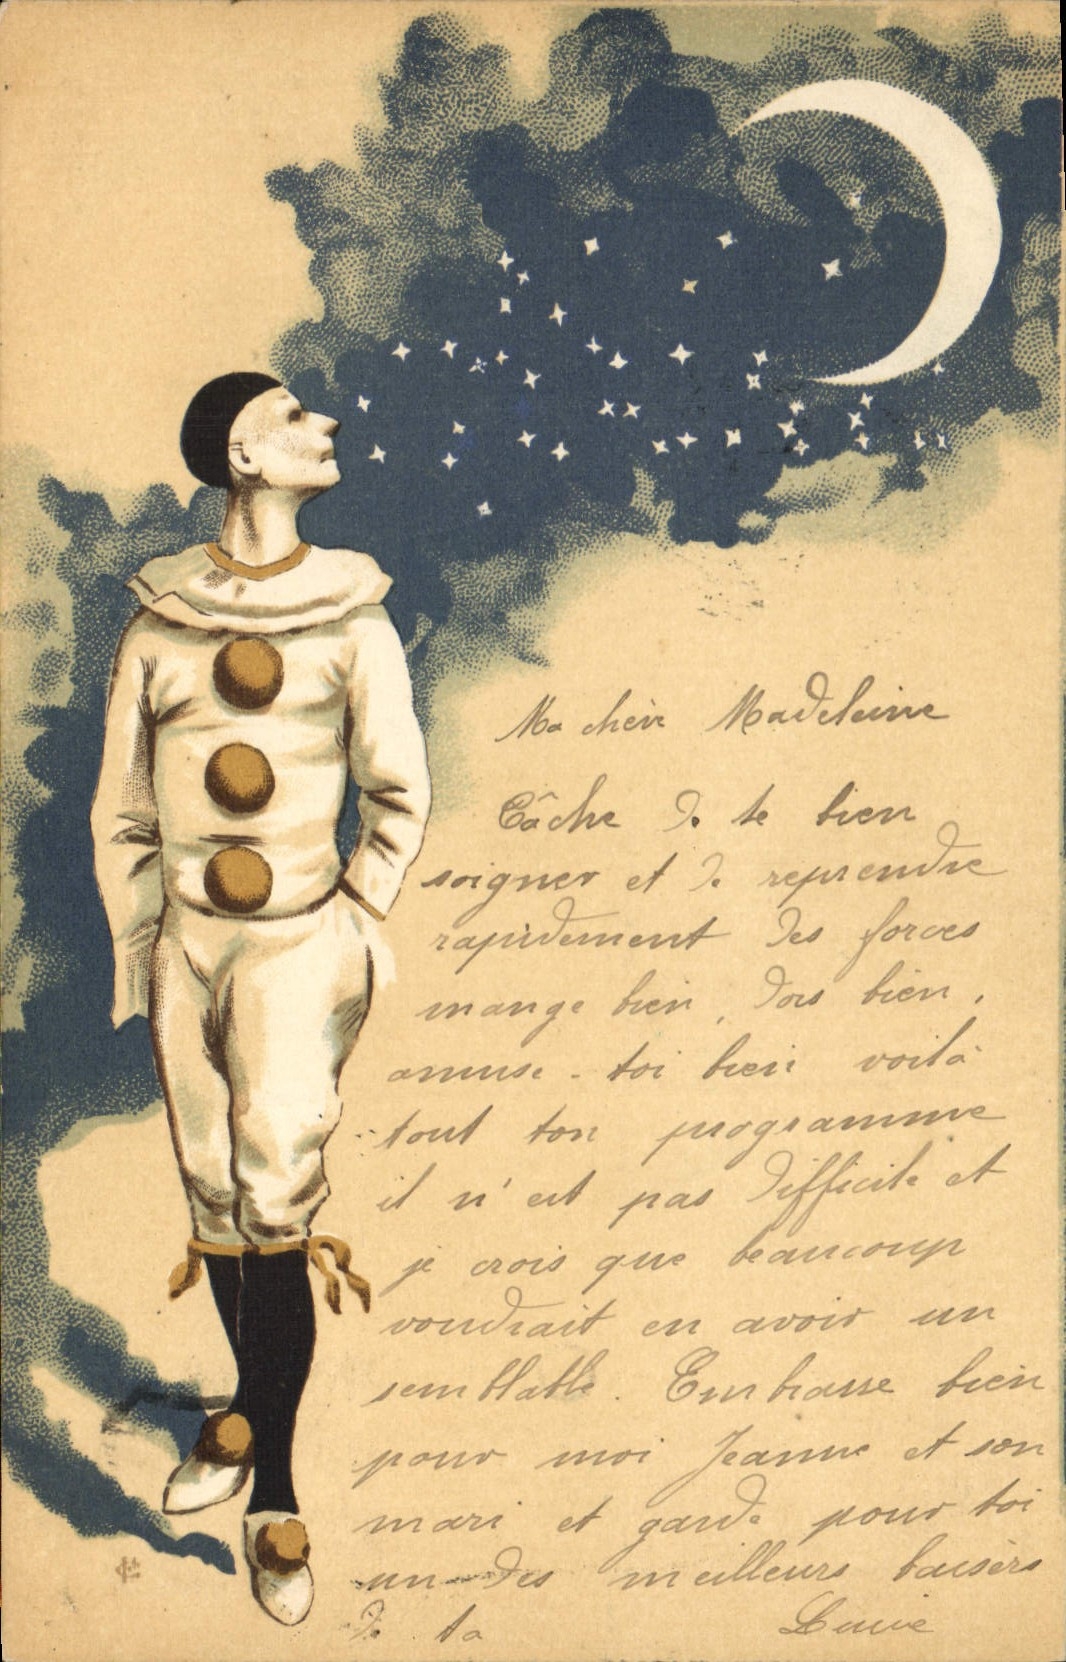 Ma chère Madeleine
Tâche de te bien
soigner et de reprendre
rapidement des forces
mange bien, dors bien,
amuse-toi bien voilà
tout ton programme
il n'est pas difficile et
je crois que beaucoup
voudrait en avoir un
semblable. Embrasse bien
pour moi Jeanne et son
mari et garde pour toi
un des meilleurs baisers
de ta Lucie